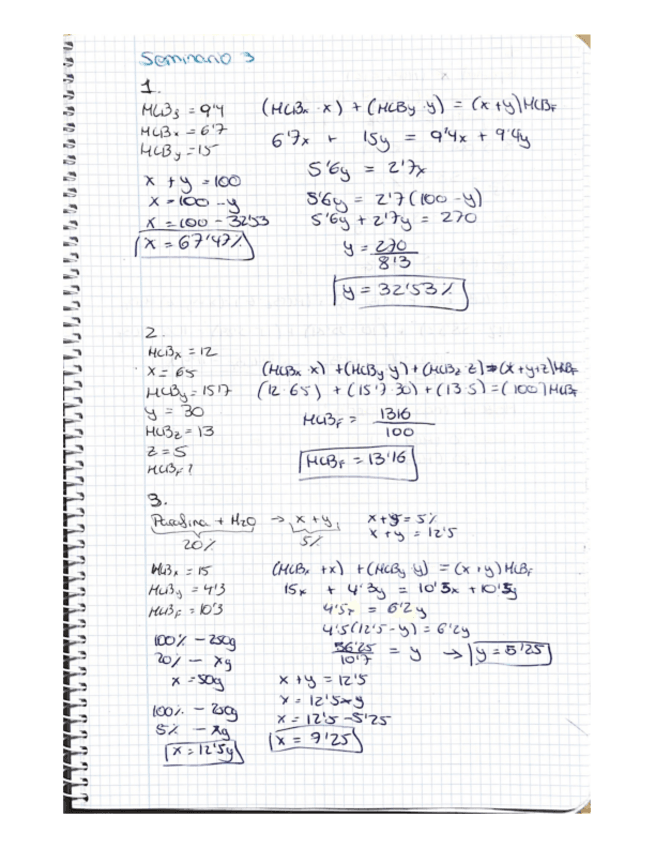 Seminario 3
1.
HLB₃ = 9'4
HLBx = 6'7
HLBy = 15
(HLBx · x) + (HLBy · y) = (x + y) HLBF
6'7x + 15y = 9'4x + 9'4y
5'6y = 2'7x
5'6y = 2'7 (100 - y)
5'6y + 2'7y = 270
y = 270 / 8'3
y = 32'53%
x + y = 100
x = 100 - y
x = 100 - 32'53
x = 67'47%
2.
HLBx = 12
x = 65
HLBy = 15'7
y = 30
HLBz = 13
z = 5
HLBF?
(HLBx · x) + (HLBy · y) + (HLBz · z) = (x + y + z) HLBF
(12 · 65) + (15'7 · 30) + (13 · 5) = (100) HLBF
HLBF = 1316 / 100
HLBF = 13'16
3.
Parafina + H2O → x + y
20% 5%
x + y = 5%
x + y = 12'5
HLBx = 15
HLBy = 4'3
HLBF = 10'3
(HLBx + x) + (HLBy · y) = (x + y) HLBF
15x + 4'3y = 10'5x + 10'5y
4'5x = 6'2y
4'5 (12'5 - y) = 6'2y
56'25 / 10'7 = y → y = 5'25
100% - 250g
20% - xg
x = 50g
100% - 250g
5% - xg
x = 12'5g
x + y = 12'5
x = 12'5 - y
x = 12'5 - 5'25
x = 9'25